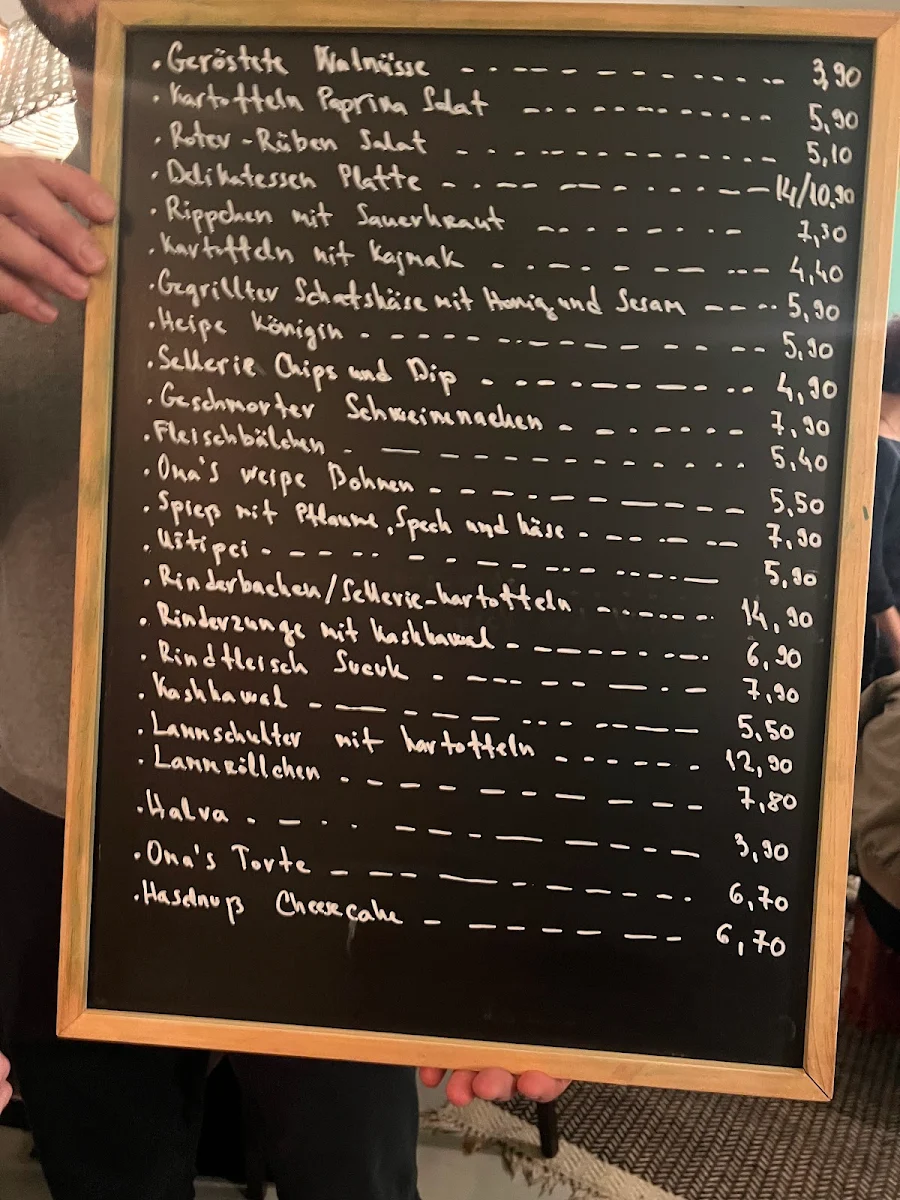 . Geröstete Walnüsse - . - - - - - - . . - . . - 3,90
. Kartoffeln Paprika Salat - - - . - - . - - - - 5,90
. Roter-Rüben Salat - . - - - . - - - - - - - 5,10
. Delikatessen Platte - . - - - - - . - . - - - 14/10,90
. Rippchen mit Sauerkraut - - - . - . - - 7,30
. Kartoffeln mit Kajmak - . - . - - - - - - - 4,40
. Gegrillter Schafskäse mit Honig und Sesam - - - - 5,90
. Heiße Königin - - - - - - - - - - - - - - 5,90
. Sellerie Chips und Dip - . - - - . - - - . - - 4,90
. Geschmorter Schweinenacken - - . - - - - 7,90
. Fleischbälchen - - - - - - - - . - . . 5,40
. Oma's weiße Bohnen - - - - . - - - - - 5,50
. Spieß mit Pflaume, Speck und käse - . - - - - 7,90
. Uštipci - - - - - - - - - - - - - - 5,90
. Rinderbacken/Sellerie-kartoffeln - - - - - - - 14,90
. Rinderzunge mit Kashkawal - - - - - - - - - . 6,90
. Rindfleisch Sucuk - - - - - - - . - - 7,90
. Kashkawal - - - - - - - - - - - 5,50
. Lammschulter mit kartoffeln - - - - - - - 12,90
. Lammröllchen - - - - - - - - - - 7,80
. Halva . - . . - - - - - - - 3,90
. Oma's Torte - - - - - - - - - - - . 6,70
. Haselnuß Cheesecake - - - - - - - - 6,70